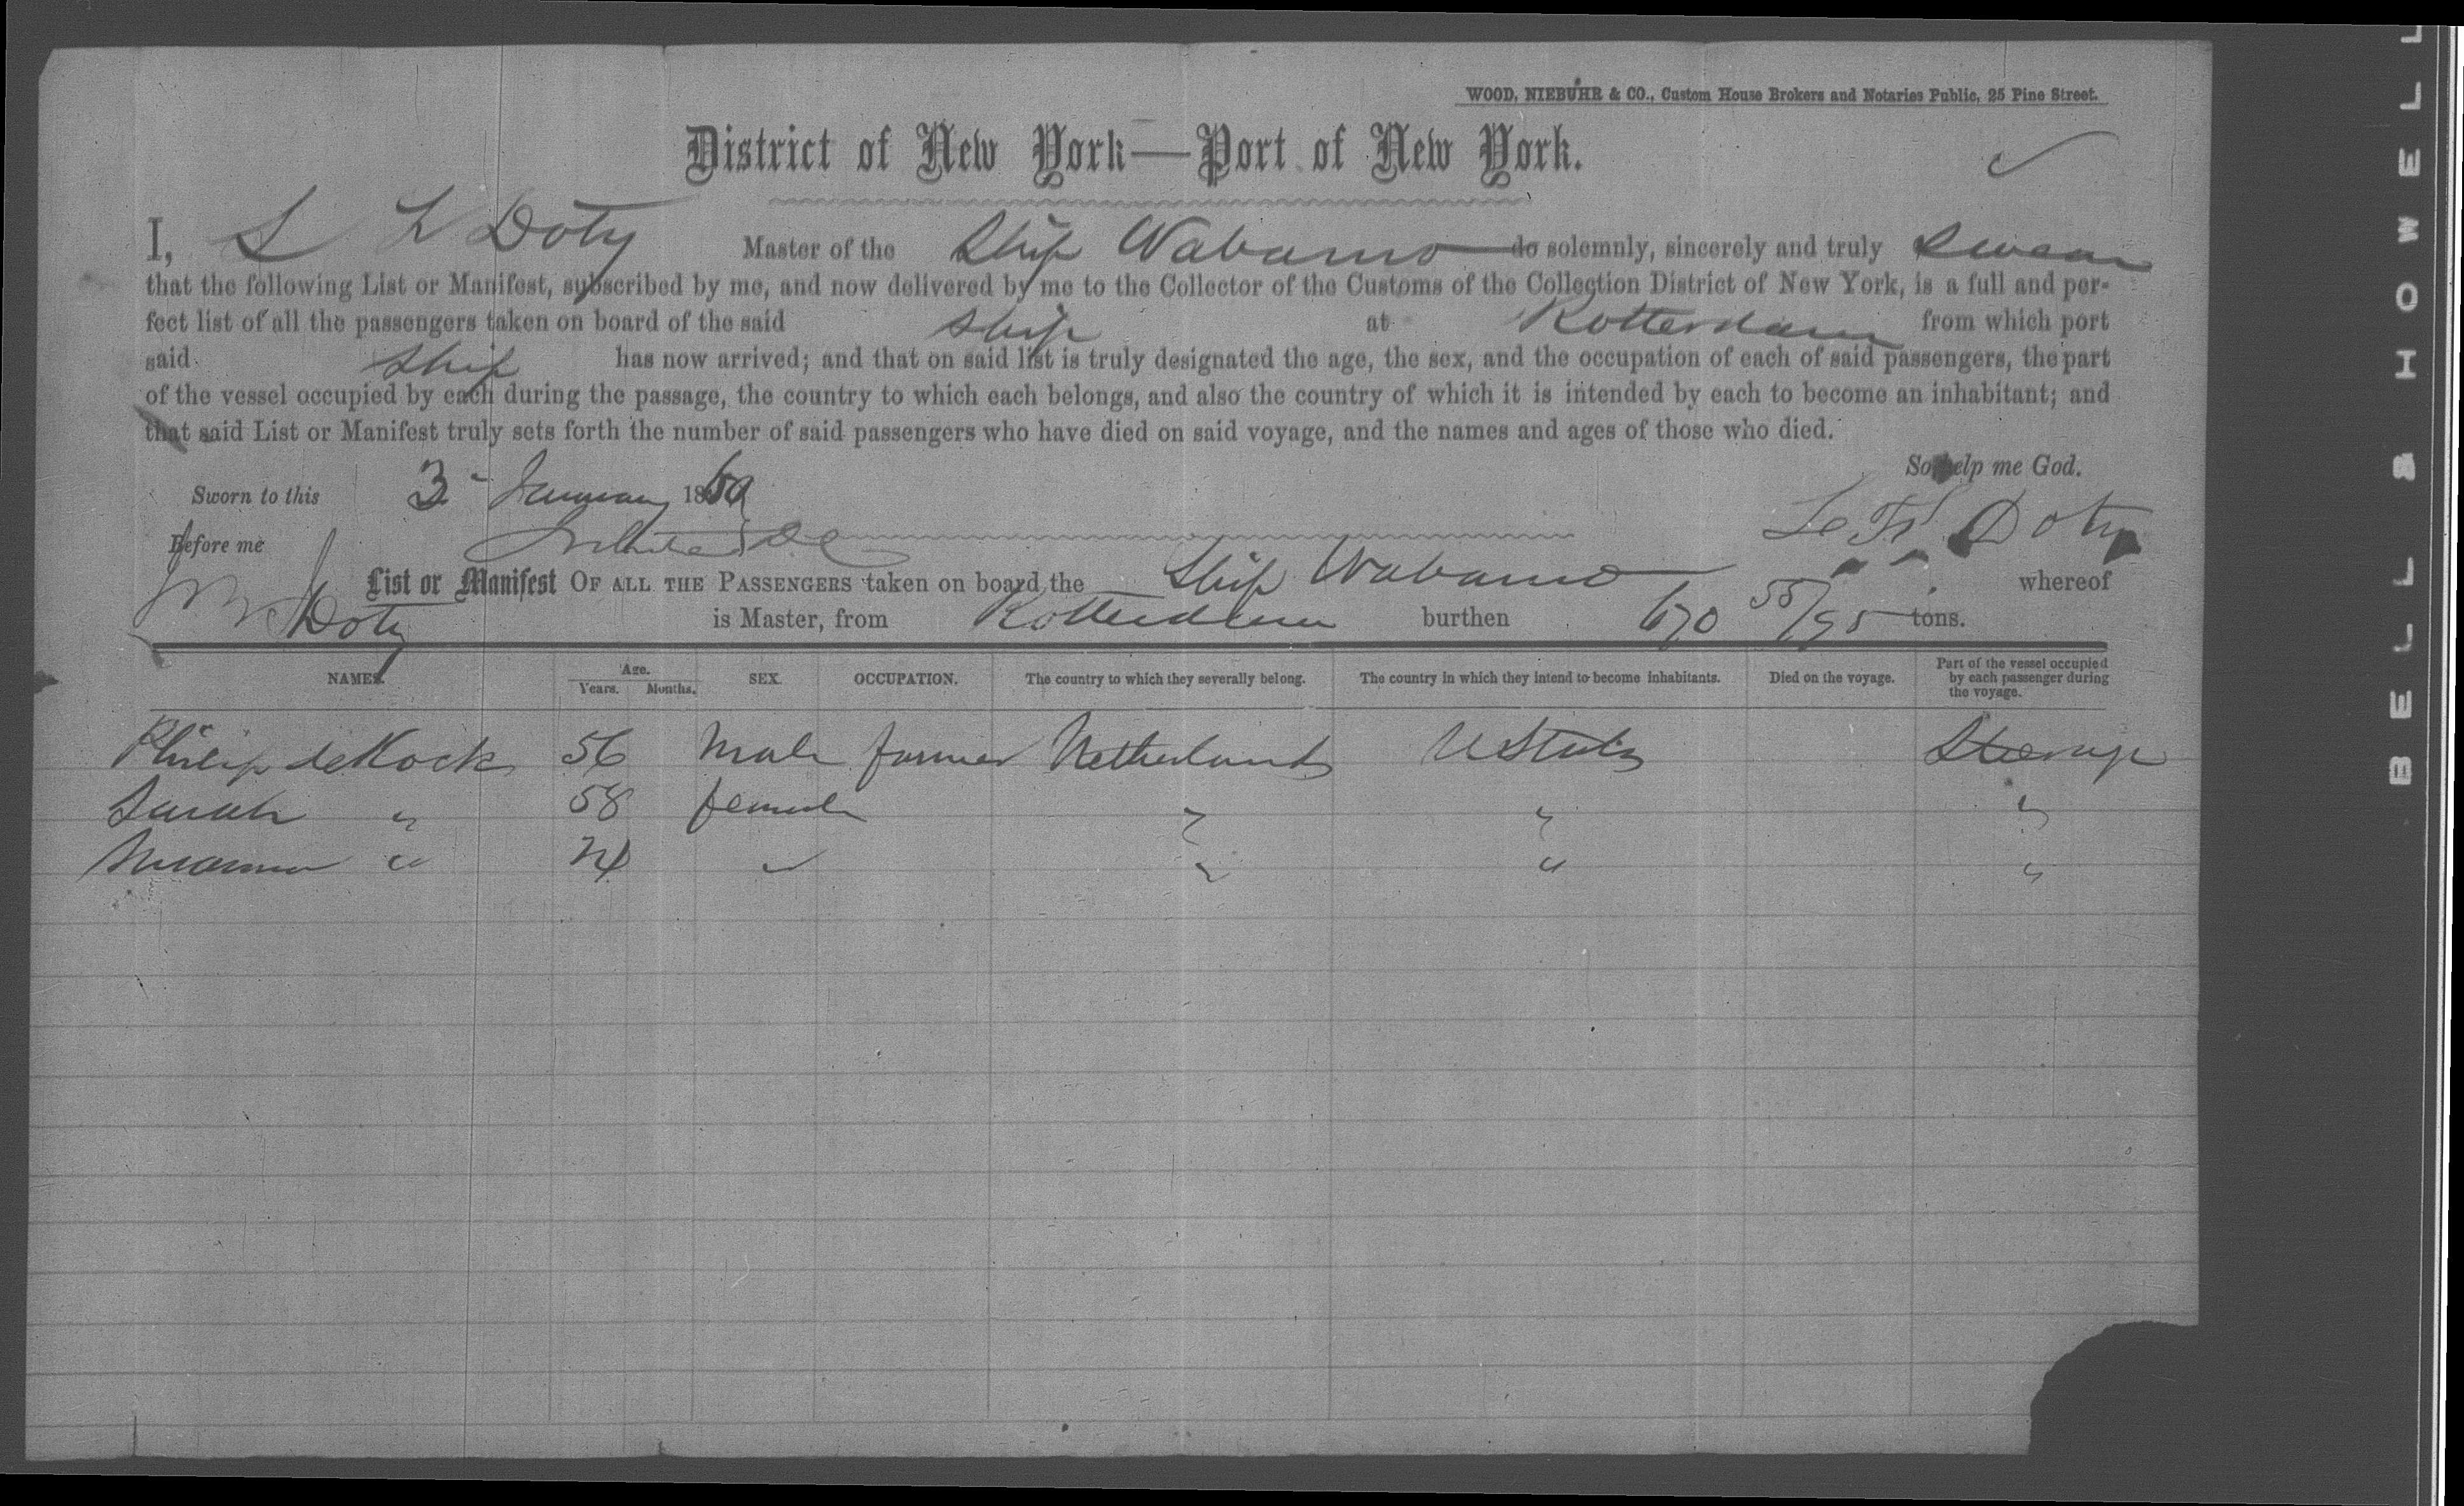 WOOD, NIEBUHR & CO., Custom House Brokers and Notaries Public, 25 Pine Street.
District of New York—Port of New York.
I, S L Doty Master of the Ship Wabamo do solemnly, sincerely and truly Swear
that the following List or Manifest, subscribed by me, and now delivered by me to the Collector of the Customs of the Collection District of New York, is a full and per-
fect list of all the passengers taken on board of the said Ship at Rotterdam from which port
said Ship has now arrived; and that on said list is truly designated the age, the sex, and the occupation of each of said passengers, the part
of the vessel occupied by each during the passage, the country to which each belongs, and also the country of which it is intended by each to become an inhabitant; and
that said List or Manifest truly sets forth the number of said passengers who have died on said voyage, and the names and ages of those who died.
So help me God.
Sworn to this 3 January 18
Before me Doty
List or Manifest OF ALL THE PASSENGERS taken on board the Ship Wabamo whereof
Doty is Master, from Rotterdam burthen 670 55/95 tons.
NAMES. Age. Years. Months. SEX. OCCUPATION. The country to which they severally belong. The country in which they intend to become inhabitants. Died on the voyage. Part of the vessel occupied by each passenger during the voyage.
Philip de Kock 56 Male farmer Netherlands U States Steerage
Sarah " 58 female " " "
" " " " "
BELL & HOWELL